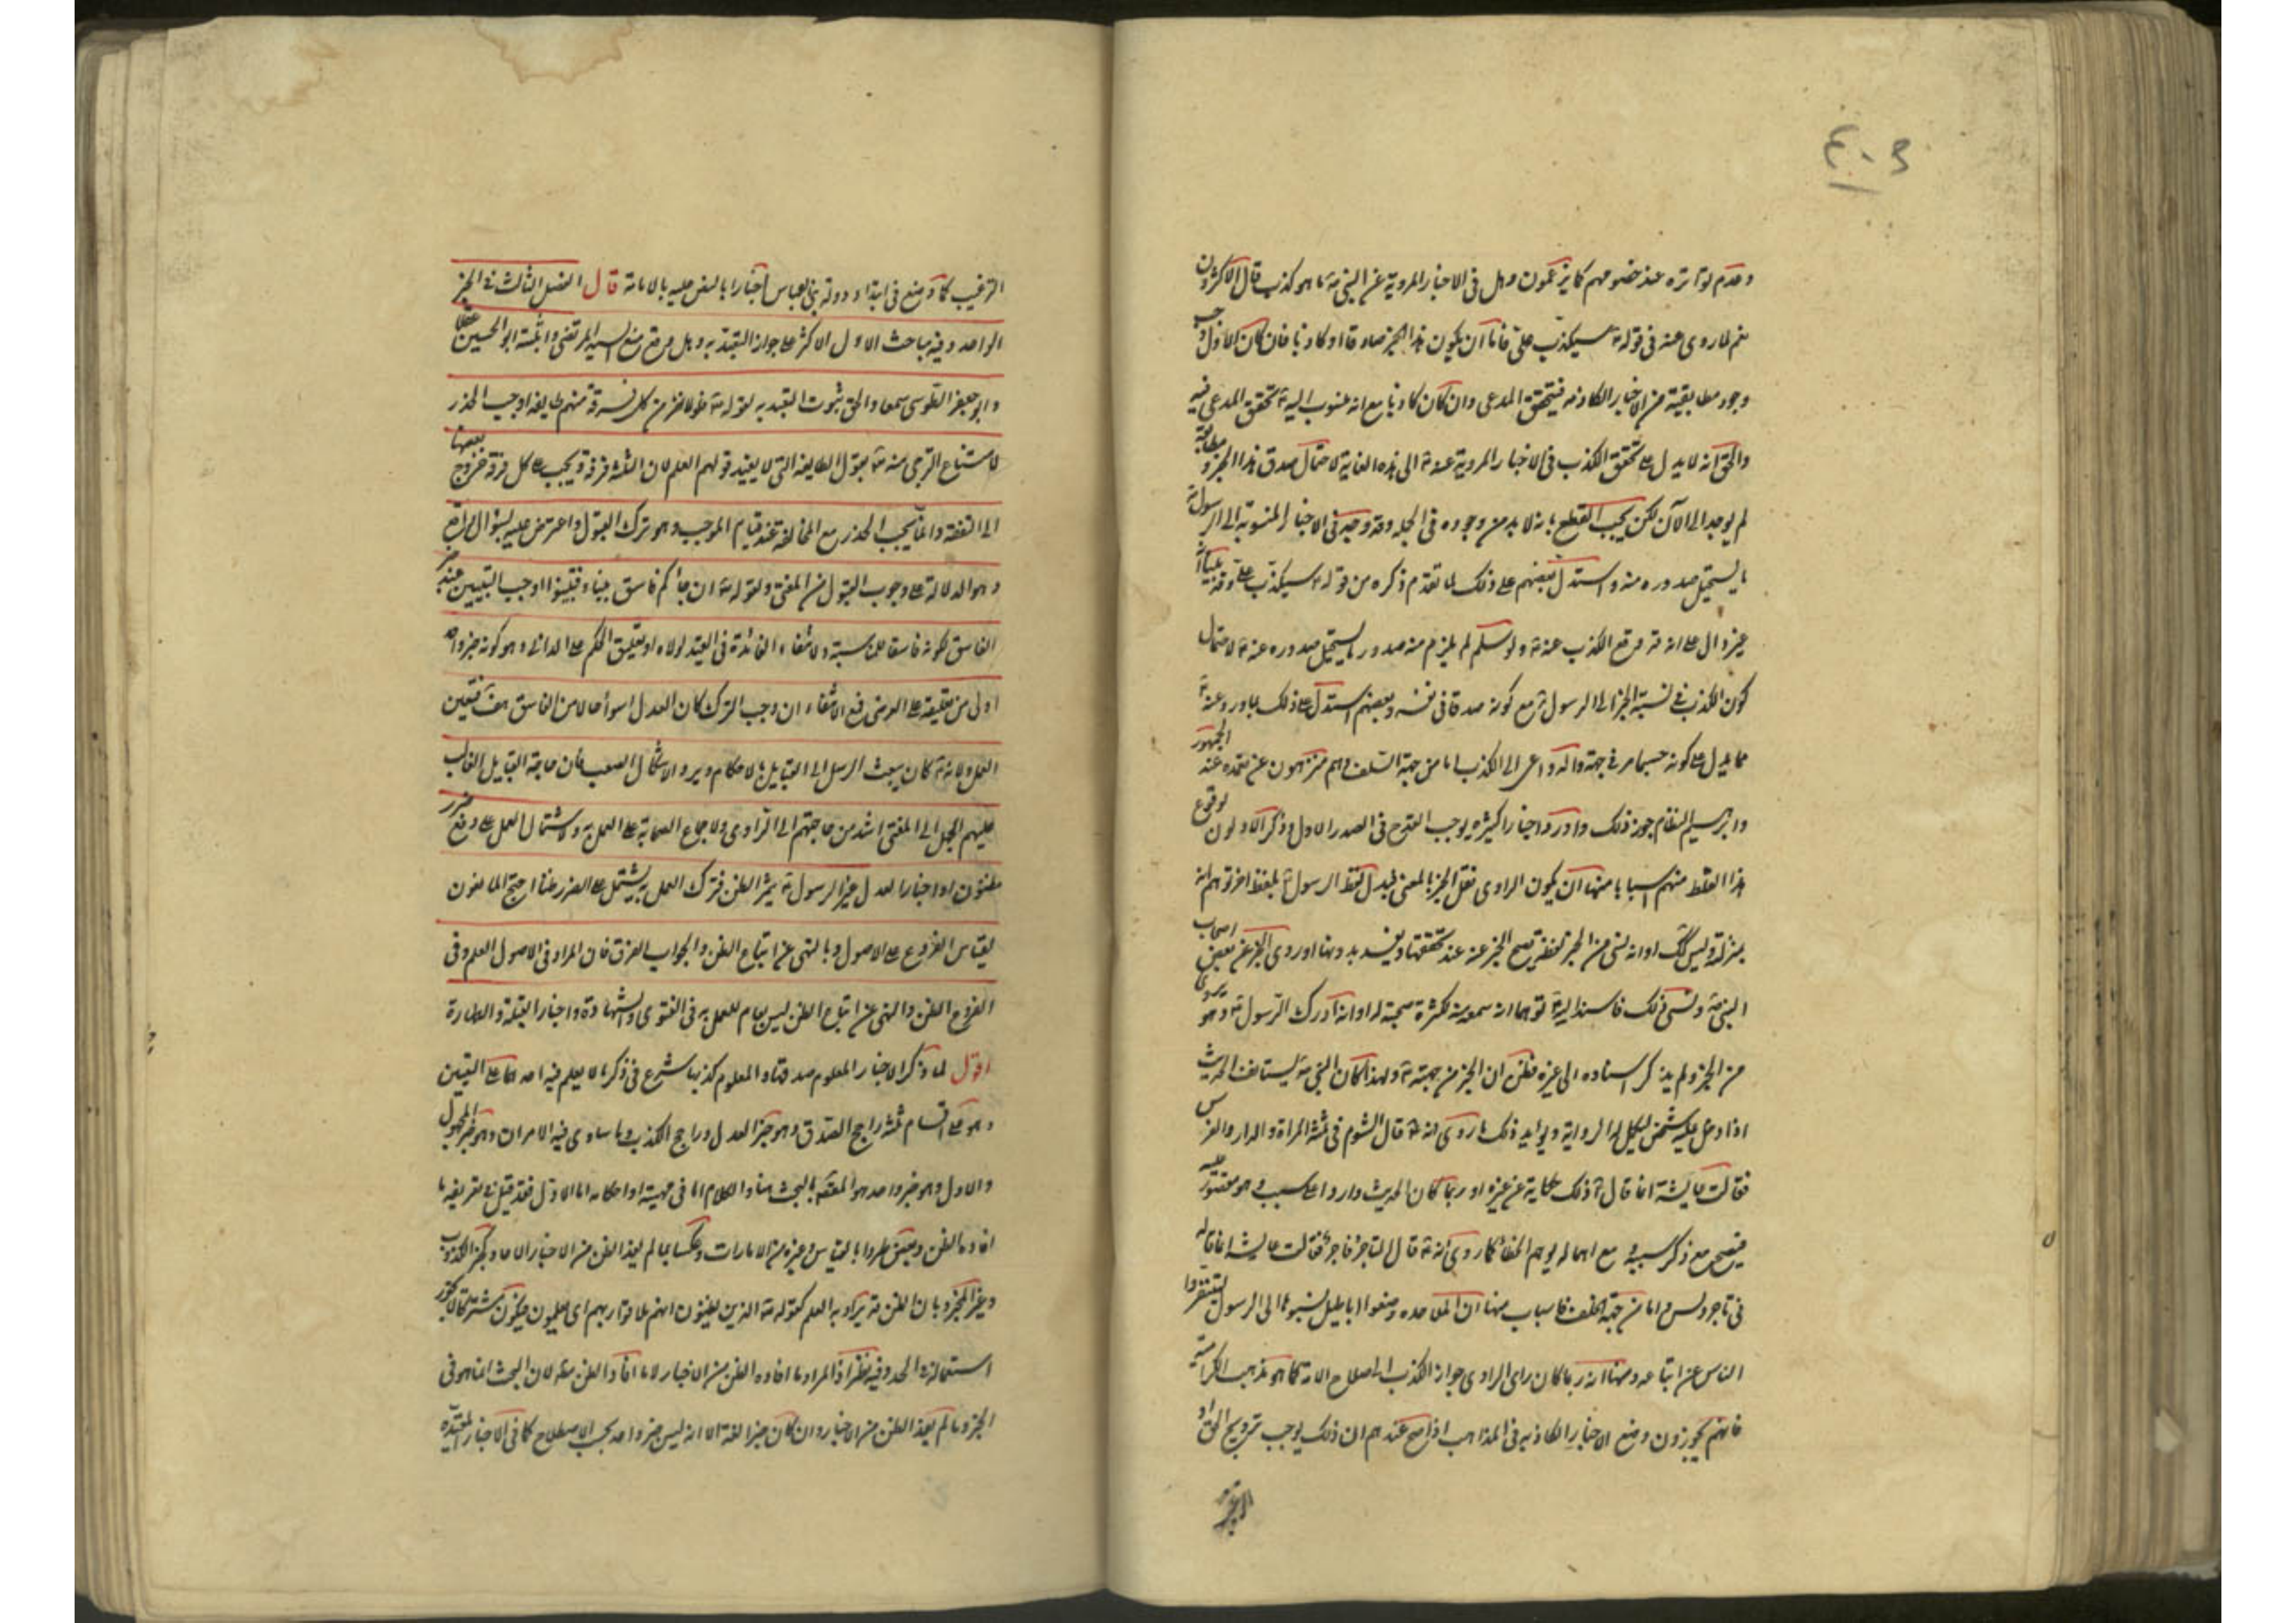 ٤٠٣
وعدم تواتره عند خصومهم كما يزعمون وهل في الاخبار المروية عن النبي ص ما هو كذب قال الاكثرون
نعم لما روى عنه في قوله ص سيكذب علي فاما ان يكون هذا الخبر صادقا او كاذبا فان كان الاول وجب
وجود مطابقه من الاخبار الكاذبه فيتحقق المدعى وان كان كاذبا مع انه منسوب اليه ص تحقق المدعى فيه
والحق انه لا يدل على تحقق الكذب في الاخبار المروية عنه ص الى هذه الغاية لاحتمال صدق هذا الخبر و مطابقه
لم يوجد الى الآن لكن يجب القطع بانه لا بد من وجوده في الجمله وقد وجد في الاخبار المنسوبة الى الرسول ص
ما يستحيل صدوره منه واستدل بعضهم على ذلك بما تقدم ذكره من قوله ص سيكذب علي وقد بينا انه
غير دال على انه قد وقع الكذب عنه ص ولو سلم لم يلزم منه صدور ما يستحيل صدوره عنه ص لاحتمال
كون الكذب في نسبة الخبر الى الرسول ص مع كونه صدقا في نفسه وبعضهم استدل على ذلك بما ورد عنه ص
مما يدل على كونه جسما مر في جهة واله داعى الى الكذب اما من جهة السلف فهم منزهون عن تعمده عند الجمهور
وابرهيم النظام جوز ذلك واورد اخبارا كثيره يوجب القدح في الصدر الاول وذكر الاولون لوقوع
هذا الغلط منهم اسبابا منها ان يكون الراوى نقل الخبر بالمعنى فبدل لفظ الرسول ص بلفظ اخر توهم انه
بمنزلته وليس كك او انه نسي من الخبر لفظة يصح الخبر عنه عند تحققها ويفسد بدونها او روى الخبر عن بعض اصحاب
النبي ص ونسى ذلك فاسنده اليه ص توهما انه سمعه منه لكثرة صحبته له او انه ادرك الرسول ص وهو يروى
من الخبر ولم يذكر اسناده الى غيره فظن ان الخبر من جهته ص ولهذا كان النبي ص يستأنف الحديث
اذا دخل عليه شخص ليكمل له الرواية ويؤيد ذلك ما روى انه ص قال الشوم في ثلثة المراة والدار والفرس
فقالت عايشة انما قال ص ذلك حكاية عن غيره او ربما كان الحديث واردا على سبب وهو مقصور عليه
فيصح مع ذكر سببه و مع اهماله يوهم الخطأ كما روى انه ص قال التاجر فاجر فقالت عايشه انما قاله
في تاجر دلس واما من جهة الخلف فاسباب منها ان الملاحده وضعوا اباطيل نسبوها الى الرسول ص لينفروا
الناس عن اتباعه ومنها انه ربما كان راى الراوى جواز الكذب لاصلاح الامة كما هو مذهب الكرامية
فانهم يجوزون وضع الاخبار الكاذبه في المذاهب اذا صح عندهم ان ذلك يوجب ترويج الحق او
الترغيب كما وضع في ابتداء دولة بني العباس اخبارا بالنص عليه بالامامة قال الفصل الثالث في الخبر
الواحد وفيه مباحث الاول الاكثر على جواز التعبد به وهل وقع منع السيد المرتضى واثبته ابو الحسين عقلا
وابو جعفر الطوسى سمعا والحق ثبوت التعبد به لقوله تع فلولا نفر من كل فرقة منهم طايفه اوجب الحذر
لامتناع الترجى منه تع بقول الطايفه التى لا يفيد قولهم العلم لان الثلثة فرقة ويجب على كل فرقة خروج بعضها
الى التفقه وانما يجب الحذر مع المخالفة عند قيام الموجب وهو ترك القبول واعترض عليه بسؤال واقع
وهو الدلالة على وجوب القبول من المفتى ولقوله تع ان جاءكم فاسق بنباء فتبينوا اوجب التبيين عند خبر
الفاسق لكونه فاسقا للمناسبة ولانتفاء الفائدة في القيد لولاه او يعليق الحكم على الذاتى وهو كونه خبر واحد
اولى من تعليقه على العرضى فمع الانتفاء ان وجب الترك كان العدل اسوأ حالا من الفاسق هف فتعين
العمل ولانه ص كان يبعث الرسل الى القبايل بالاحكام ويرد الاشكال الصعب فان حاجة القبايل الغالب
عليهم الجهل الى المفتى اشد من حاجتهم الى الراوى ولاجماع الصحابة على العمل به ولاشتمال العمل على دفع ضرر
مظنون اذ اخبار العدل عن الرسول ص يثمر الظن فترك العمل به يشتمل على الضرر ظنا احتج المانعون
بقياس الفروع على الاصول وبالنهى عن اتباع الظن والجواب الفرق فان المراد في الاصول العلم وفى
الفروع الظن والنهى عن اتباع الظن ليس بعام للعمل به في الفتوى والشهادة واخبار القبلة والطهارة
اقول لما ذكر الاخبار المعلوم صدقها والمعلوم كذبها شرع في ذكر ما لا يعلم فيه احدهما على التعيين
وهو على اقسام ثلثة راجح الصدق وهو خبر العدل وراجح الكذب وما ساوى فيه الامران وهو خبر المجهول
والاول وهو خبر واحد هو المقصد بالبحث هنا والكلام اما في مهيته او احكامه اما الاول فقد قيل في تعريفه ما
افاده الظن وينتقض طردا بالقياس وغيره من الامارات وعكسا بما لم يفد الظن من الاخبار الاحاد كخبر الكذوب
وغير المخبر وبان الظن قد يراد به العلم كقوله تع الذين يظنون انهم ملاقوا ربهم اى يعلمون فيكون مشتركا لا يجوز
استعماله في الحد وفيه نظر اذ المراد ما افاده الظن من الاخبار لا ما افاد الظن مطلقا لان البحث انما هو في
الخبر وما لم يفد الظن من الاخبار وان كان خبرا لغة الا انه ليس خبر واحد بحسب الاصطلاح كما في الاخبار المقيده